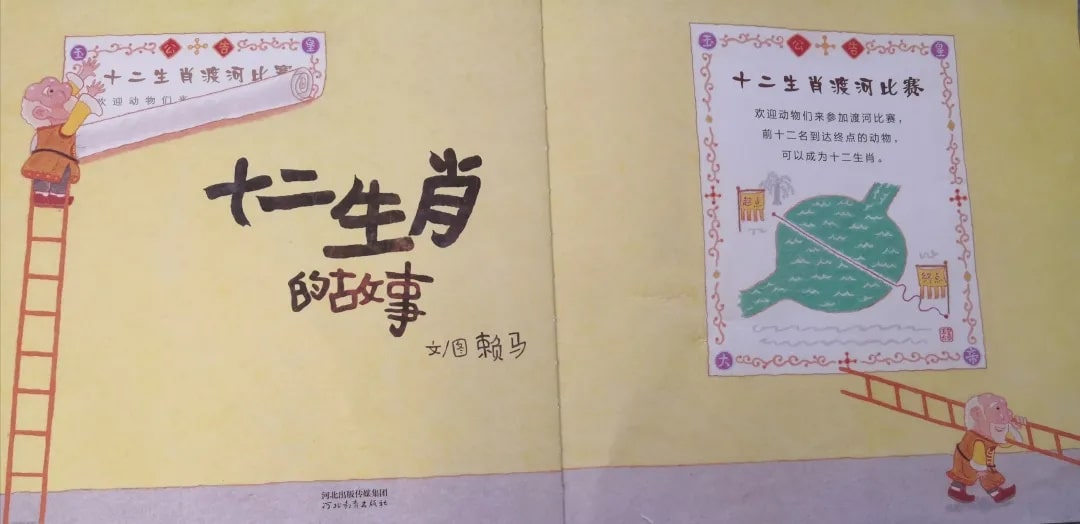 玉 公 告 皇
十二生肖渡河比赛
欢迎动物们来
十二生肖
的故事
文/图 赖马
河北出版传媒集团
河北教育出版社
玉 公 告 皇
十二生肖渡河比赛
欢迎动物们来参加渡河比赛，
前十二名到达终点的动物，
可以成为十二生肖。
起点
终点
大 帝